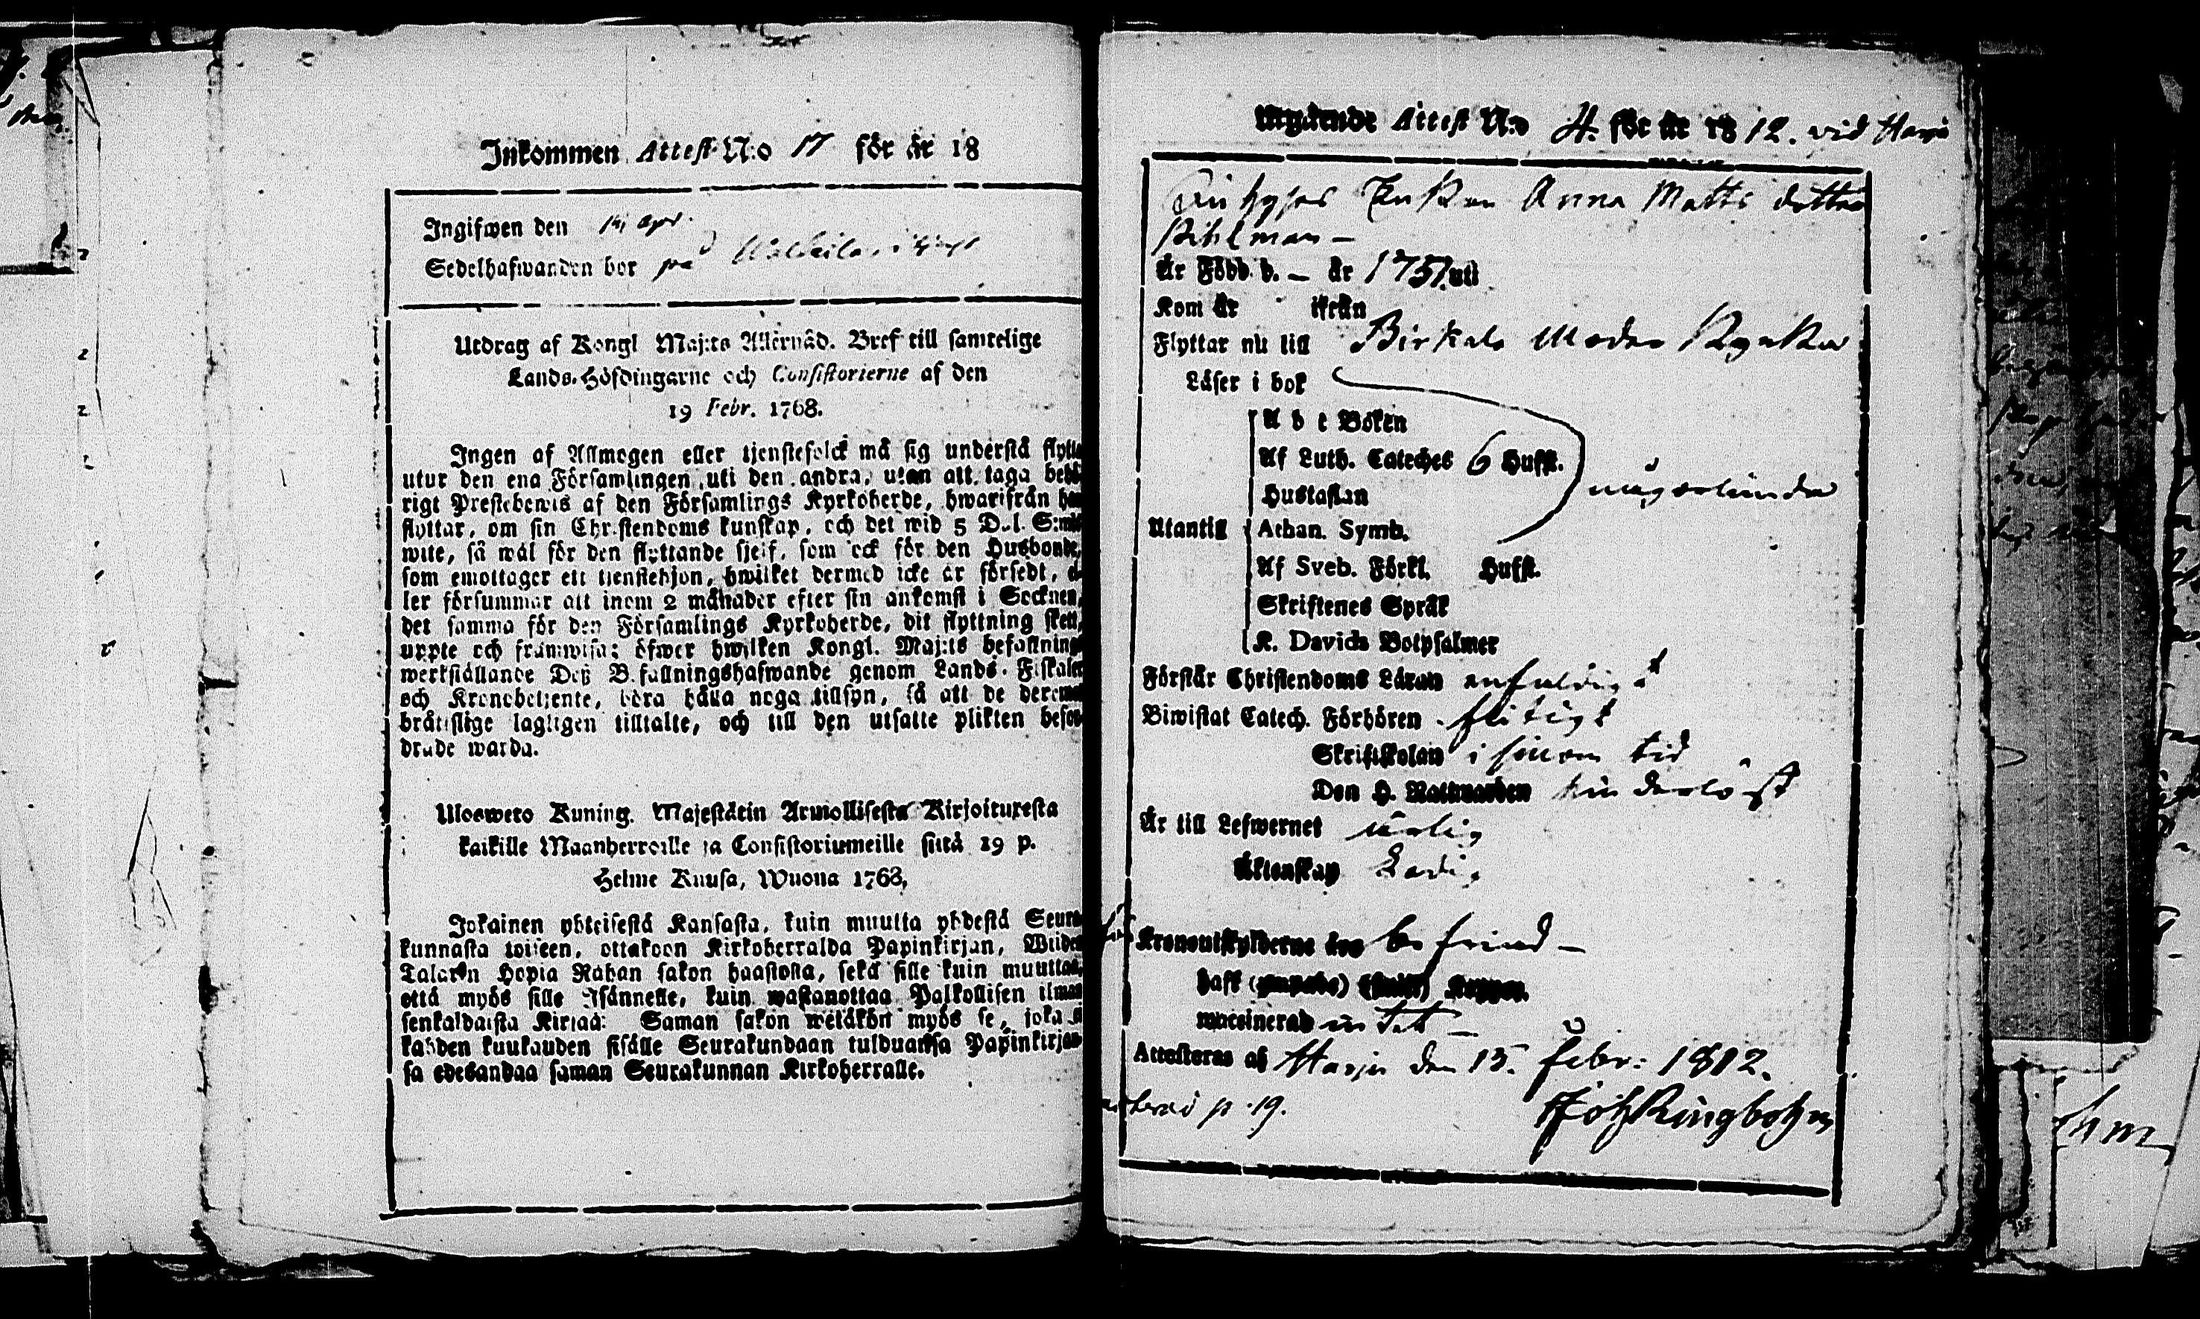 Inkommen Attest N:o 17 för år 18
Ingifwen den 14 Apr.
Sedelhafwanden bor på
Utdrag af Kongl Maj:ts Allernåd. Bref till samtelige
Lands-Höfdingarne och Consistorierne af den
19 Febr. 1768.
Ingen af Allmogen eller tjenstefolck må sig understå flytta
utur den ena Församlingen uti den andra, utan att taga behö-
rigt Prestebewis af den Församlings Kyrkoherde, hwarifrån han
flyttar, om sin Christendoms kunskap, och det wid 5 Dal. S:mts
wite, så wäl för den flyttande sjelf, som ock för den Husbonde,
som emottager ett tjenstehjon, hwilket dermed icke är försedt, el
ler försummar att inom 2 månader efter sin ankomst i Socknen,
det samma för den Församlings Kyrkoherde, dit flyttning skett,
uppte och framwisa; öfwer hwilken Kongl. Maj:ts befallning
werkställande Deß Befallningshafwande genom Lands-Fiskaler
och Kronobetjente, böra hålla noga tillsyn, så att de deremot
bråttslige lagligen tilltalte, och till den utsatte plikten befor-
drade warda.
Ulosweto Kuning. Majestätin Armollisesta Kirjoituxesta
kaikille Maanherroille ja Consistoriumeille siitä 19 p.
Helme Kuusa, Wuona 1768,
Jokainen yhteisestä Kansasta, kuin muutta yhdestä Seura
kunnasta toiseen, ottakoon Kirkoherralda Papinkirjan, Wiiden
Talarin Hopia Rahan sakon haastolla, sekä sille kuin muuttaa,
että myös sille Isännelle, kuin wastanottaa Palkollisen ilman
senkaldaista Kirjaa: Saman sakon wetäkön myös se, joka ei
kahden kuukauden sisälle Seurakundaan tulduansa Papinkirjan
sa edesandaa saman Seurakunnan Kirkoherralle.
Utgående Attest N:o 4. för år 1812. vid Harju
Enkan Anna Matts dotter
Är Född d. – år 1751. uti
Kom år ifrån
Flyttar nu till Birkala Moder Kyrka
Läser i bok
A b c Boken
Af Luth. Cateches 6 Hufst.
Hustaflan
Utantill Athan. Symb.
Af Sveb. Förkl. Hufst.
Skriftenes Språk
K. Davids Botpsalmer
Förstår Christendoms Läran enfaldigt
Biwistat Catech. Förhören flitigt
Skriftskolan i sinom tid
Den H. Nattwarden hinderlöst
Är till Lefwernet ärlig
Äktenskap Ledig
Kronoutskylderne äro befriad –
haft
waccinerad intet –
Attesteras af Harju den 15. Febr: 1812.
p. 19.
Joh Ringbohm